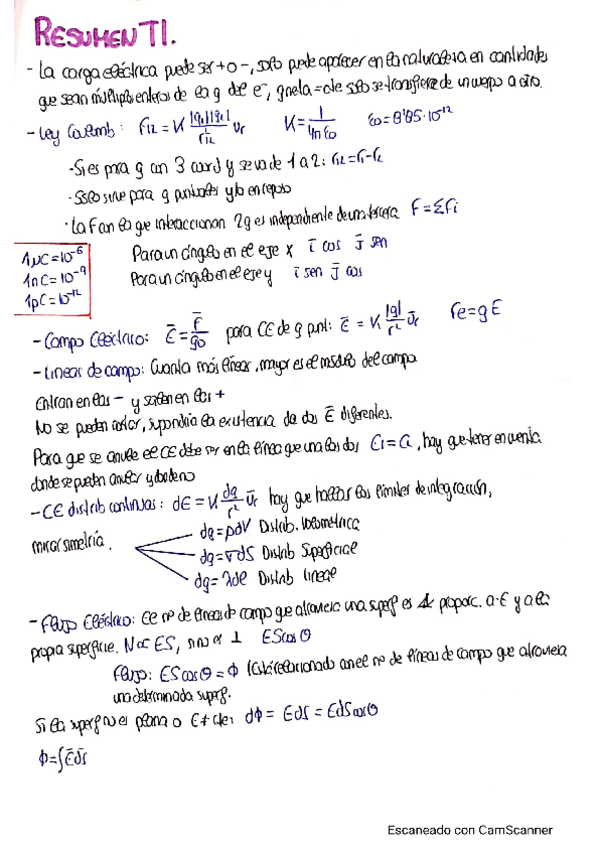 RESUMEN T1.
- La carga eléctrica puede ser + o -, solo puede aparecer en la naturaleza en cantidades
que sean múltiplos enteros de la q del e⁻, q neta = cte solo se transfiere de un cuerpo a otro.
- Ley Coulomb: F12 = K |q1||q2| / r²12 ur   K = 1/4πε0   ε0 = 8'85·10⁻¹²
- Si es para q con 3 coord y se va de 1 a 2: r12 = r1 - r2
- Solo sirve para q puntuales y/o en reposo
· La F con la que interaccionan 2q es independiente de una tercera F = ΣFi
1μC = 10⁻⁶
1nC = 10⁻⁹
1pC = 10⁻¹²
Para un ángulo en el eje x ī cos j̄ sen
Para un ángulo en el eje y ī sen j̄ cos
- Campo Eléctrico: Ē = F̄/q0 para CE de q punt: Ē = K |q|/r² ūr   Fe = qE
- Lineas de campo: Cuanta más líneas, mayor es el módulo del campo.
Entran en las - y salen en las +
No se pueden cortar, supondría la existencia de dos Ē diferentes.
Para que se anule el CE debe ser en la línea que una las dos E1 = E2, hay que tener en cuenta
donde se pueden anular y donde no
- CE distrib continuas: dĒ = K dq/r² ūr hay que hallar los límites de integración,
mirar simetría.
dq = ρdV Distrib. Volumétrica
dq = σdS Distrib Superficial
dq = λdl Distrib lineal
- Flujo Eléctrico: El nº de líneas de campo que atraviesa una superf es proporc. a E y a la
propia superficie. N∝ES, si no es ⊥ EScosθ
Flujo: EScosθ = Φ (Está relacionado con el nº de líneas de campo que atraviesa
una determinada superf.
Si la superf no es plana o E ≠ cte: dΦ = EdS = EdScosθ
Φ = ∫Ēds̄
Escaneado con CamScanner